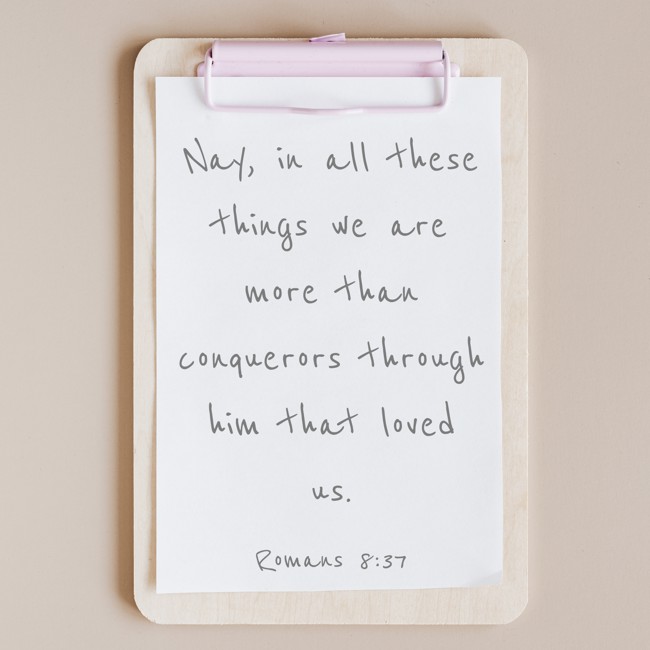 Nay, in all these
things we are
more than
conquerors through
him that loved
us.
Romans 8:37